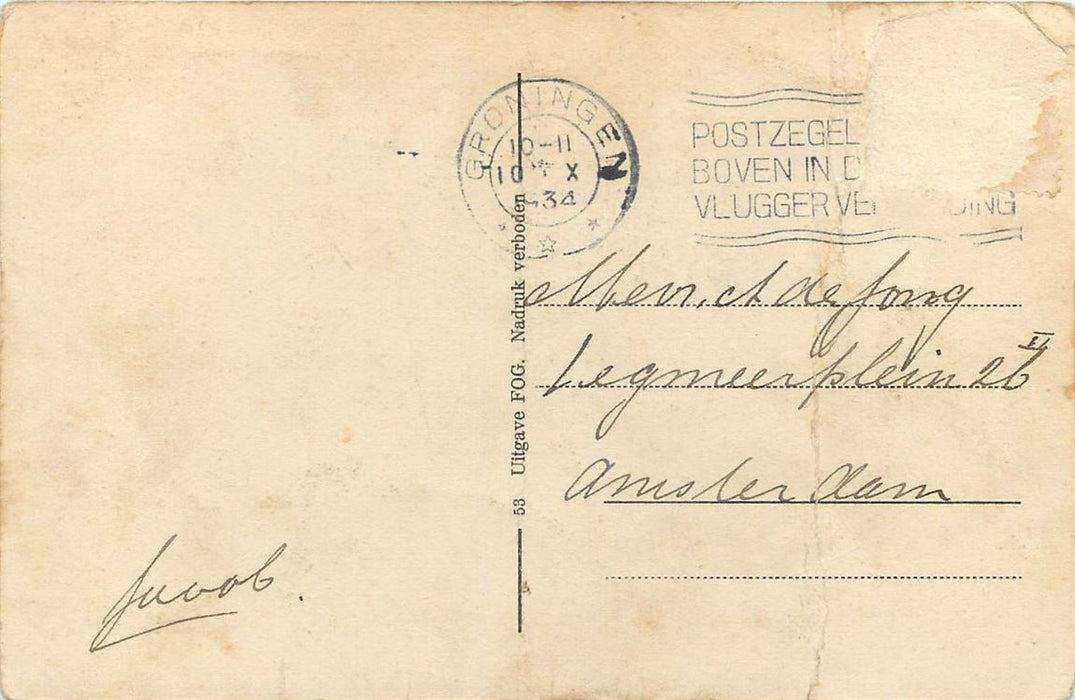 GRONINGEN
10-11
10 X
1934
POSTZEGEL
BOVEN IN D
VLUGGER VE DING
Mevr. A de Jong
Legmeerplein 26 II
Amsterdam
53 Uitgave FOG. Nadruk verboden
Jacob.